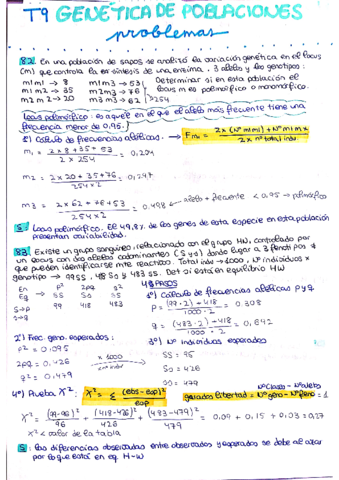 T9 GENÉTICA DE POBLACIONES
problemas
8.2 En una población de sapos se analizó la variación genética en el locus
(m) que controla la síntesis de una enzima, 3 alelos y los genotipos:
m1m1 → 8 m1m3 → 53 Determinar si en esta población el
m1m2 → 35 m2m3 → 76 locus m es polimórfico o monomórfico.
m2m2 → 20 m3m3 → 62 → 254
Locus polimórfico: es aquel en el que el alelo más frecuente tiene una
frecuencia menor de 0,95.
1º) Cálculo de frecuencias alélicas. → Fm1 = 2x(Nº m1m1) + Nº m1mx / 2 x nº total indv
m1 = 2x8+35+53 / 2x254 = 0,204
m2 = 2x20+35+76 / 254x2 = 0,297
m3 = 2x62+76+53 / 254x2 = 0,498 → alelo + frecuente < 0,95 → polimórfico
S: locus polimórfico. El 49,8% de los genes de esta especie en esta población
presentan variabilidad.
8.3 Existe un grupo sanguíneo, relacionado con el grupo MN, controlado por
un locus con dos alelos codominantes (S y s) donde lugar a 3 fenotipos
que pueden identificarse mte reactivos. Total indv → 1000, Nº individuos x
genotipo → 99SS, 418 Ss y 483 ss. Det si está en equilibrio HW
En p² 2pq q² 4 PASOS
Eq SS Ss ss 1º) Cálculo de frecuencias alélicas p y q
S→p 99 418 483 p = (99·2)+418 / 1000·2 = 0.308
s→q q = (483·2)+418 / 1000·2 = 0,692
2º) Frec. geno. esperados: 3º) Nº individuos esperados
p² = 0,095 SS = 95
2pq = 0,426 x 1000 Ss = 426
q² = 0,479 ss = 479
4º) Prueba X² X² = Σ (obs-esp)² / esp
grados libertad = Nº geno - Nº feno = 1
X² = (99-95)² / 95 + (418-426)² / 426 + (483-479)² / 479 = 0,09 + 0,15 + 0,03 = 0,27
X² < valor de la tabla
S: las diferencias observadas entre observados y esperados se debe al azar
por lo que está en eq. H-W